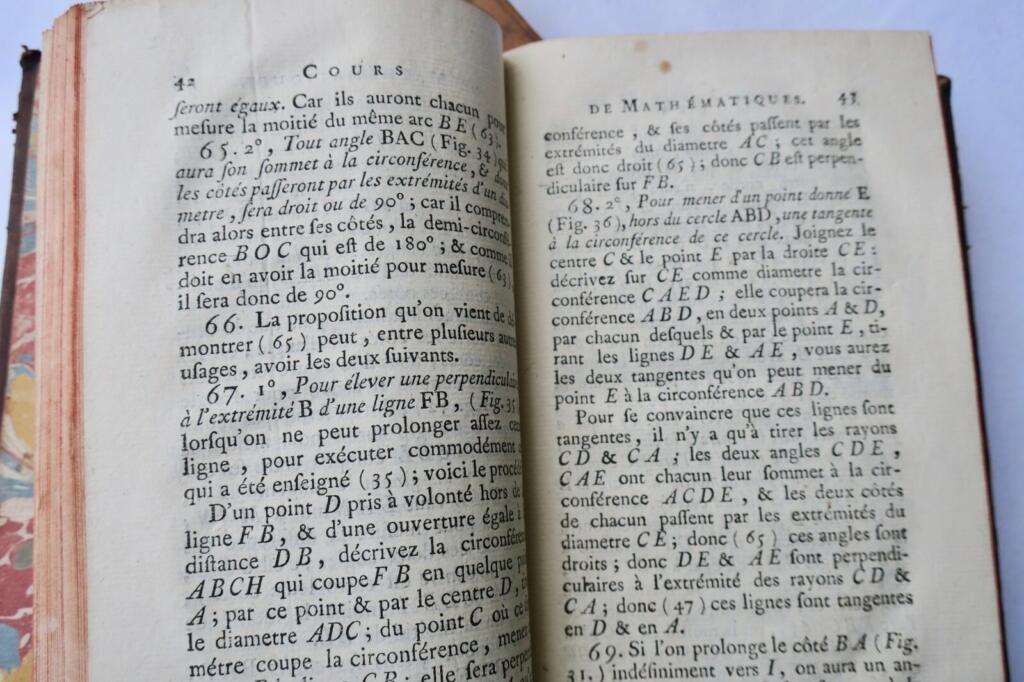 42 COURS
ſeront égaux. Car ils auront chacun pour
meſure la moitié du même arc BE (63).
65. 2°, Tout angle BAC (Fig. 34) qui
aura ſon ſommet à la circonférence, &
les côtés paſſeront par les extrémités d'un
metre, ſera droit ou de 90°; car il
dra alors entre ſes côtés, la
rence BOC qui eſt de 180°; & comme
doit en avoir la moitié pour meſure (63),
il ſera donc de 90°.
66. La propoſition qu'on vient de
montrer (65) peut, entre pluſieurs
uſages, avoir les deux ſuivants.
67. 1°, Pour élever une perpendiculaire
à l'extrémité B d'une ligne FB, (Fig. 35
lorſqu'on ne peut prolonger aſſez
ligne, pour exécuter commodément
qui a été enſeigné (35); voici le procédé
D'un point D pris à volonté hors de
ligne FB, & d'une ouverture égale à
diſtance DB, décrivez la
ABCH qui coupe FB en quelque
A; par ce point & par le centre D,
le diametre ADC; du point C où
métre coupe la circonférence,
CB; elle ſera
DE MATHÉMATIQUES. 43
conférence, & ſes côtés paſſent par les
extrémités du diametre AC; cet angle
eſt donc droit (65); donc CB eſt perpen-
diculaire ſur FB.
68. 2°, Pour mener d'un point donné E
(Fig. 36), hors du cercle ABD, une tangente
à la circonférence de ce cercle. Joignez le
centre C & le point E par la droite CE:
décrivez ſur CE comme diametre la cir-
conférence CAED; elle coupera la cir-
conférence ABD, en deux points A & D,
par chacun deſquels & par le point E, ti-
rant les lignes DE & AE, vous aurez
les deux tangentes qu'on peut mener du
point E à la circonférence ABD.
Pour ſe convaincre que ces lignes ſont
tangentes, il n'y a qu'à tirer les rayons
CD & CA; les deux angles CDE,
CAE ont chacun leur ſommet à la cir-
conférence ACDE, & les deux côtés
de chacun paſſent par les extrémités du
diametre CE; donc (65) ces angles ſont
droits; donc DE & AE ſont perpendi-
culaires à l'extrémité des rayons CD &
CA; donc (47) ces lignes ſont tangentes
en D & en A.
69. Si l'on prolonge le côté BA (Fig.
31.) indéfiniment vers I, on aura un an-